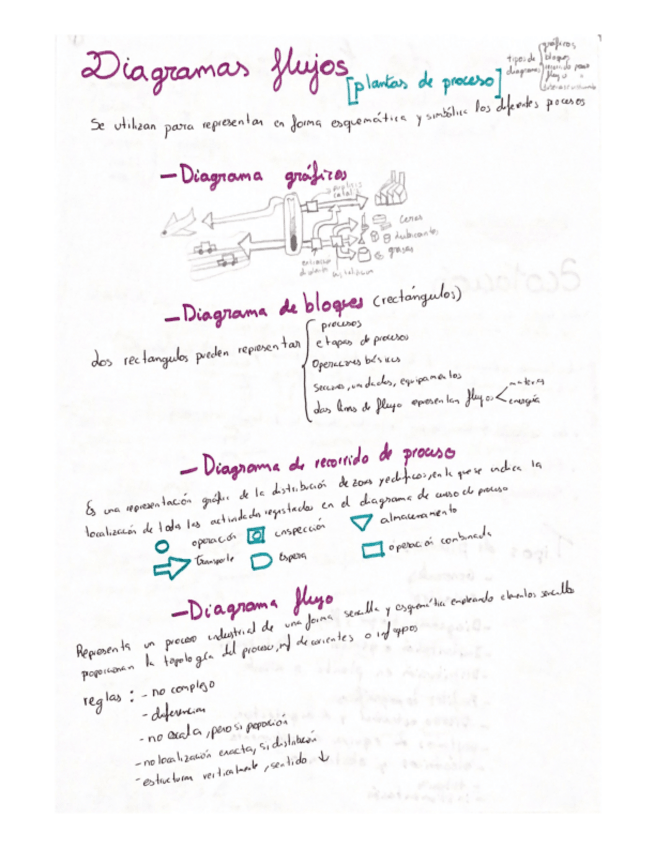 Diagramas flujos
[plantas de proceso]
tipos de diagramas
gráficos
bloques
Se utilizan para representar en forma esquemática y simbólica los diferentes procesos
- Diagrama gráficos
Ceras
Lubricantes
grasas
- Diagrama de bloques (rectángulos)
dos rectangulos pueden representar
procesos
etapas de procesos
Operaciones básicas
Secciones, unidades, equipamientos
das lineas de flujo representan flujos
materia
energía
- Diagrama de recorrido de proceso
Es una representación gráfica de la distribución de zonas y edificios, en la que se indica la
localización de todas las actividades registradas en el diagrama de curso de proceso
operación
inspección
almacenamiento
Transporte
Espera
operación combinada
- Diagrama flujo
Representa un proceso industrial de una forma sencilla y esquemática empleando elementos sencillos
proporcionan la topología del proceso, inf de corrientes o inf equipos
reglas: - no complejo
- diferencian
- no escala, pero si proporción
- no localización exacta, si distribución
- estructuran verticalmente, sentido ↓